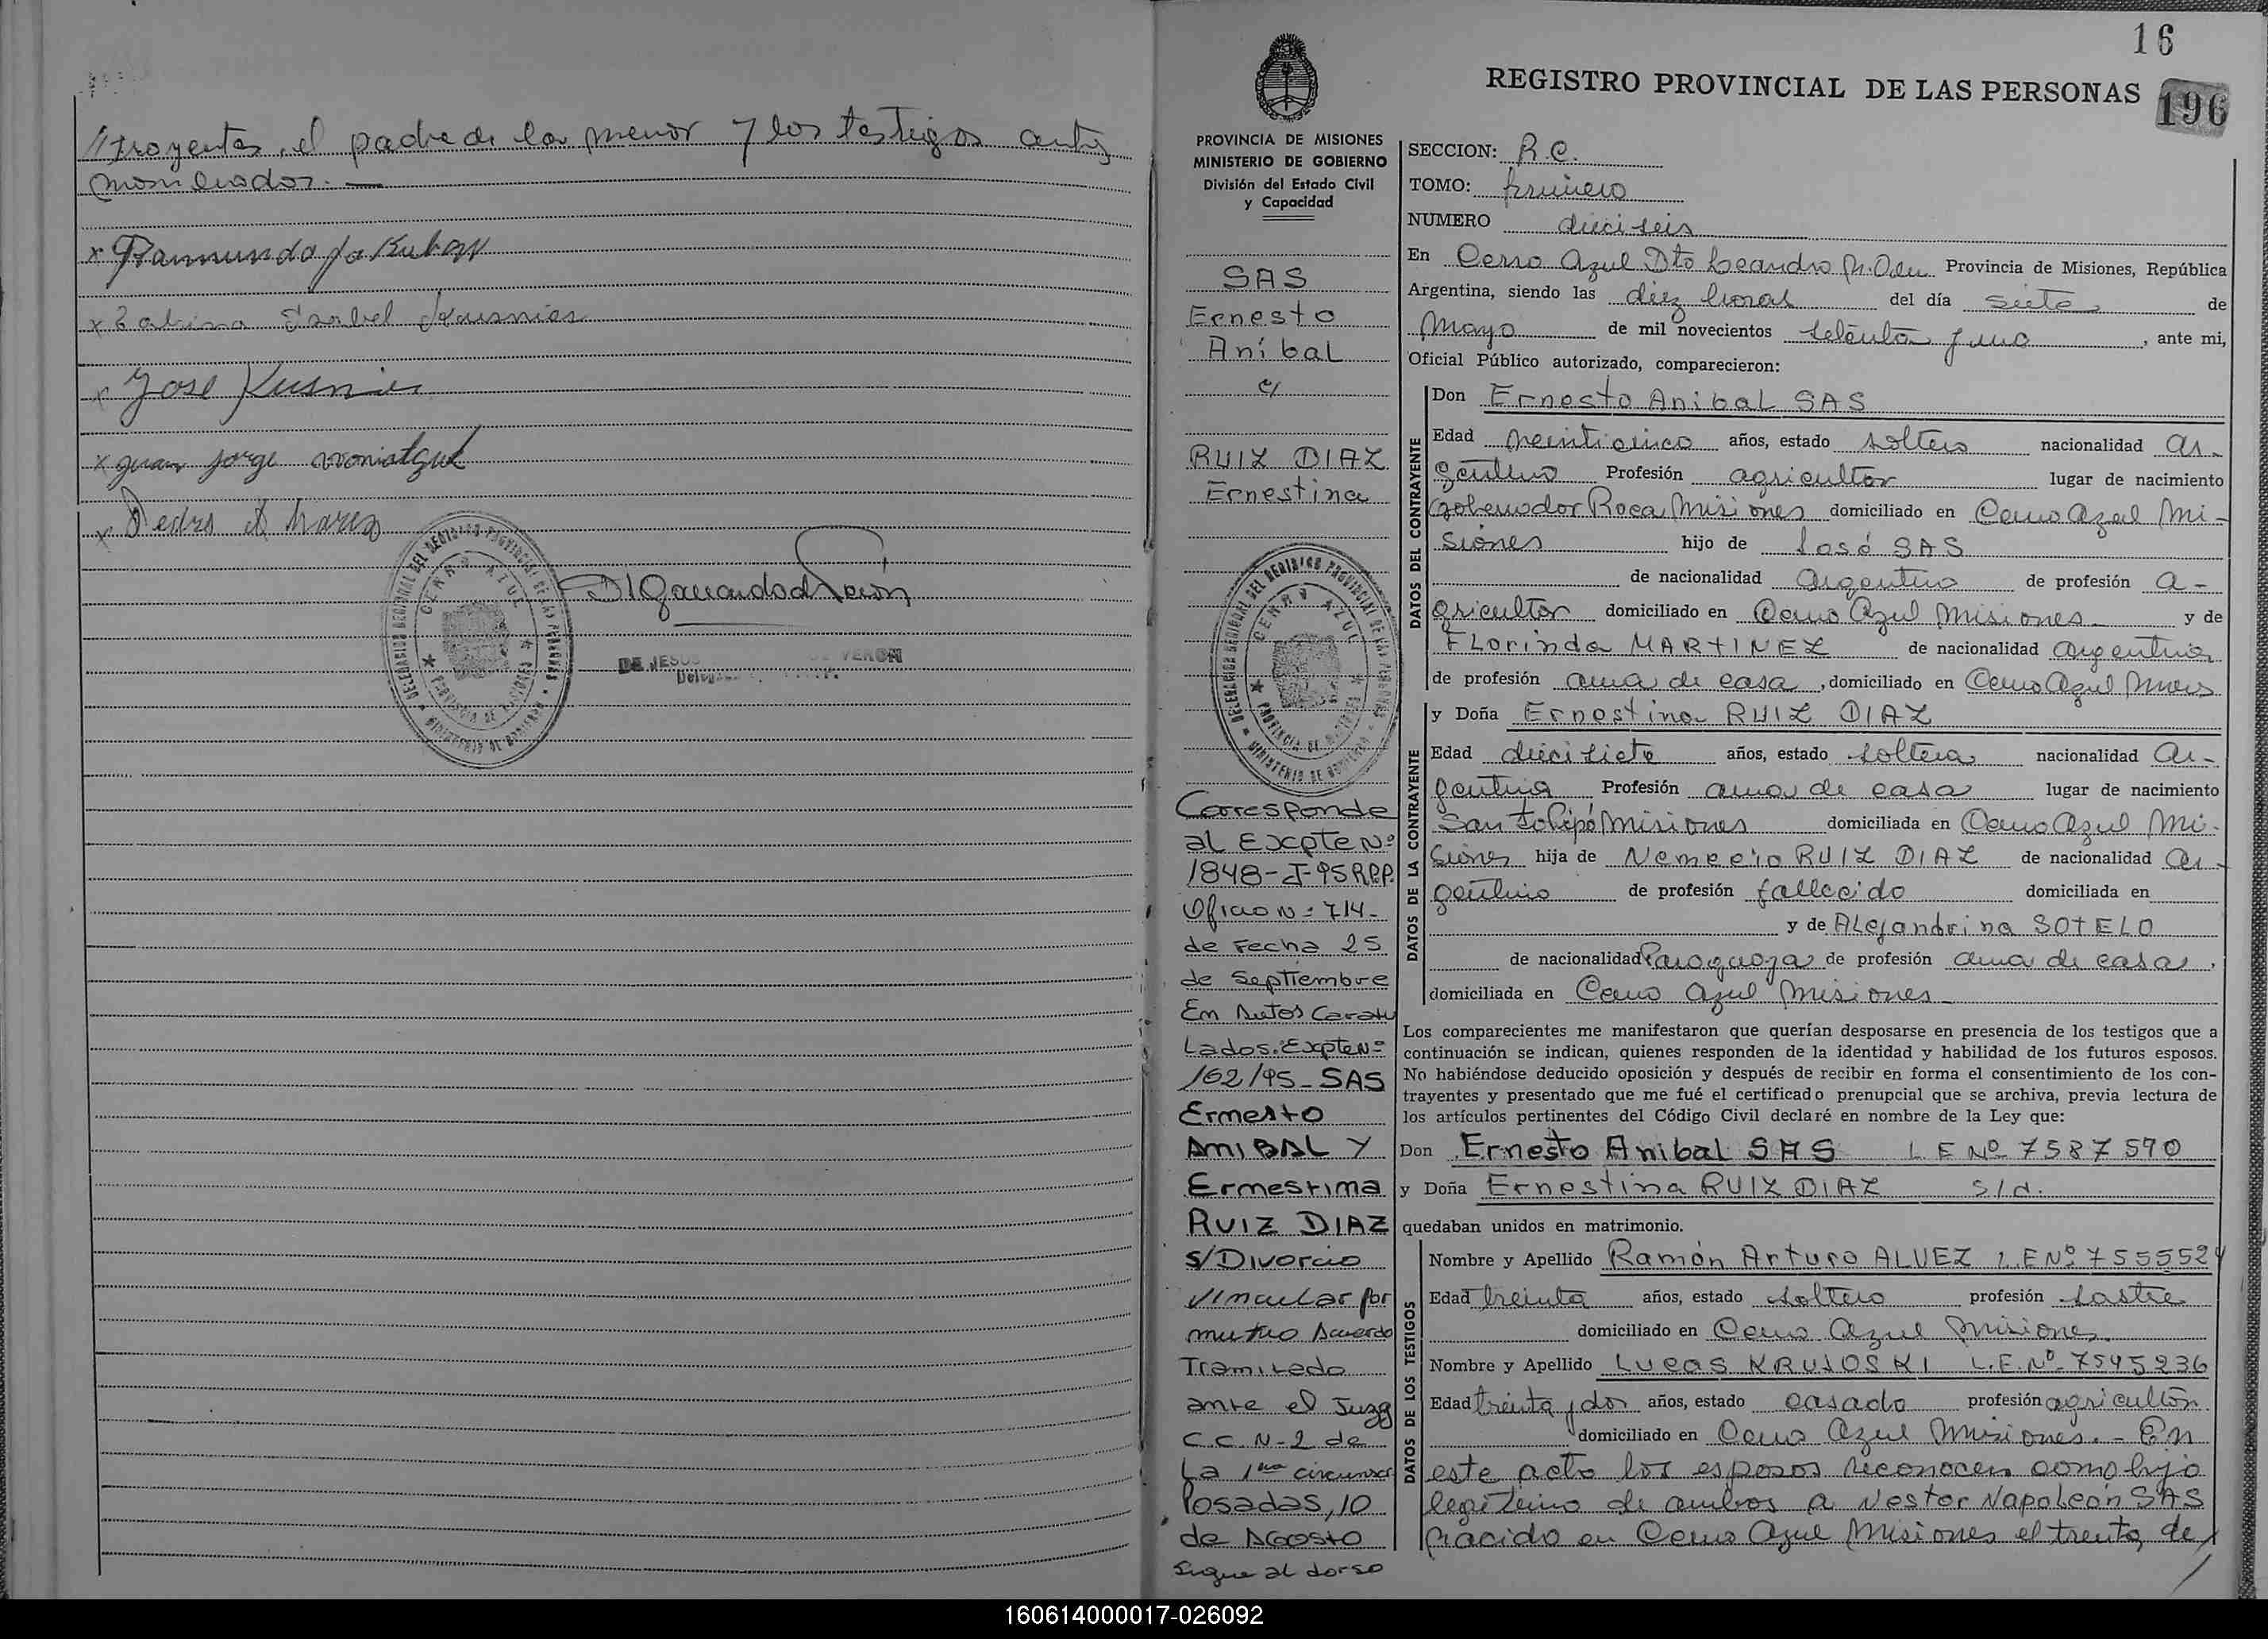 //trayentes, el padre de la menor y los testigos ante
moni
x Raimundo
x Isabel
x Jose Kusnier
x Juan Jorge
x Pedro
DE JESUS DE VERON
16
REGISTRO PROVINCIAL DE LAS PERSONAS
196
PROVINCIA DE MISIONES
MINISTERIO DE GOBIERNO
División del Estado Civil
y Capacidad
SAS
Ernesto
Aníbal
c/
RUIZ DIAZ
Ernestina
DELEGACION REGIONAL DEL REGISTRO PROVINCIAL DE LAS PERSONAS
CERRO AZUL
PROVINCIA DE MISIONES
MINISTERIO DE GOBIERNO
Corresponde
al Expte Nº
1848-J-95 R.P.P.
Oficio Nº 714-
de Fecha 25
de Septiembre
En Autos Caratu
Lados: Expte Nº
162/95- SAS
Ernesto
ANIBAL Y
Ernestina
RUIZ DIAZ
s/Divorcio
vincular por
mutuo Acuerdo
Tramitado
ante el Juzg
C.C. N-2 de
La 1ra circunscr
Posadas, 10
de AGOSTO
Sigue al dorso
SECCION: R.C.
TOMO: primero
NUMERO dieciseis
En Cerro Azul Dto Leandro N. Alem Provincia de Misiones, República
Argentina, siendo las diez horas del día siete de
Mayo de mil novecientos setenta y uno, ante mi,
Oficial Público autorizado, comparecieron:
DATOS DEL CONTRAYENTE
Don Ernesto Anibal SAS
Edad veinticinco años, estado soltero nacionalidad ar-
gentino Profesión agricultor lugar de nacimiento
Gobernador Roca Misiones domiciliado en Cerro Azul Mi-
siones hijo de José SAS
de nacionalidad Argentino de profesión a-
gricultor domiciliado en Cerro Azul Misiones y de
Florinda MARTINEZ de nacionalidad argentina
de profesión ama de casa, domiciliado en Cerro Azul Mnes
DATOS DE LA CONTRAYENTE
y Doña Ernestina RUIZ DIAZ
Edad diecisiete años, estado soltera nacionalidad Ar-
gentina Profesión ama de casa lugar de nacimiento
Santo Pipó Misiones domiciliada en Cerro Azul Mi-
siones hija de Nemecio RUIZ DIAZ de nacionalidad Ar-
gentino de profesión fallecido domiciliada en
y de Alejandrina SOTELO
de nacionalidad Paraguaya de profesión ama de casa,
domiciliada en Cerro Azul Misiones
Los comparecientes me manifestaron que querían desposarse en presencia de los testigos que a
continuación se indican, quienes responden de la identidad y habilidad de los futuros esposos.
No habiéndose deducido oposición y después de recibir en forma el consentimiento de los con-
trayentes y presentado que me fué el certificado prenupcial que se archiva, previa lectura de
los artículos pertinentes del Código Civil declaré en nombre de la Ley que:
Don Ernesto Anibal SAS L E Nº 7587570
y Doña Ernestina RUIZ DIAZ s/d.
quedaban unidos en matrimonio.
DATOS DE LOS TESTIGOS
Nombre y Apellido Ramón Arturo ALVEZ L.E Nº 7555524
Edad treinta años, estado soltero profesión sastre
domiciliado en Cerro Azul Misiones
Nombre y Apellido Lucas KRUJOSKI L.E. Nº 7545236
Edad treinta y dos años, estado casado profesión agricultor
domiciliado en Cerro Azul Misiones. - En
este acto los esposos reconocen como hijo
legítimo de ambos a Nestor Napoleón SAS
nacido en Cerro Azul Misiones el treinta de/
160614000017-026092